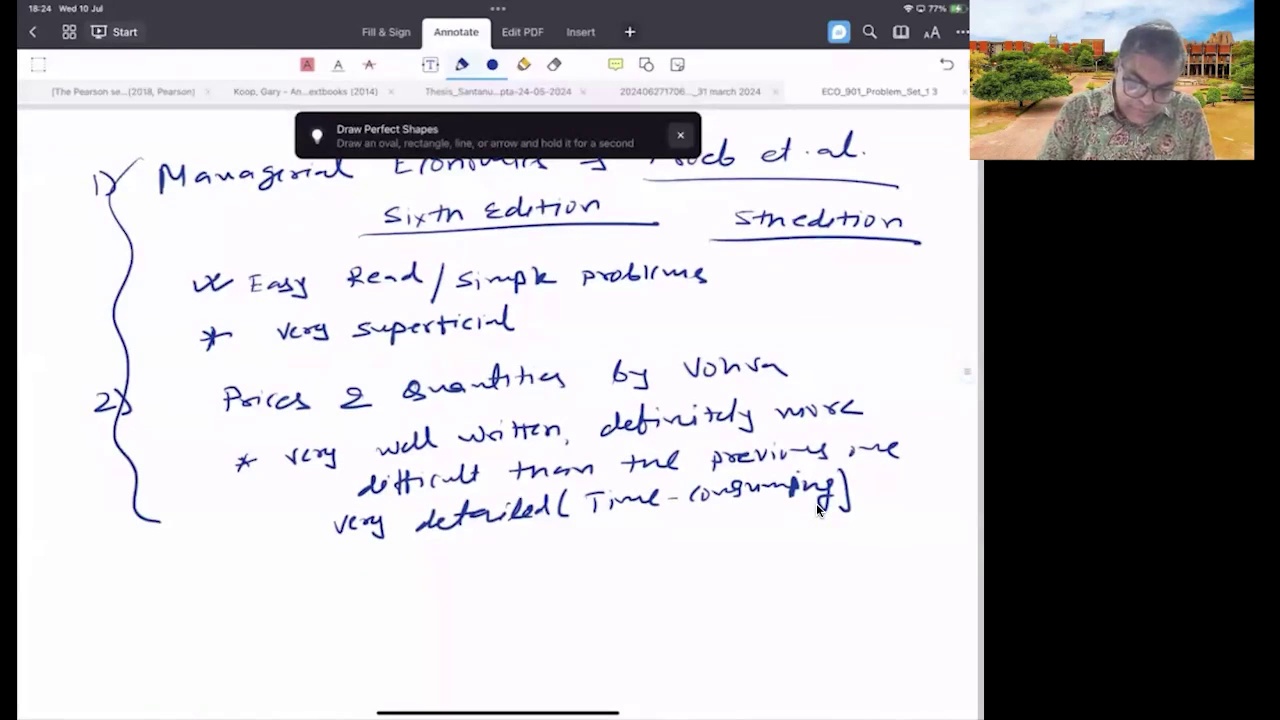 18:24 Wed 10 Jul
77%
Start
Fill & Sign
Annotate
Edit PDF
Insert
[The Pearson se...(2018, Pearson)
Koop, Gary - An...extbooks (2014)
Thesis_Santanu...pta-24-05-2024
202406271706..._31 march 2024
ECO_901_Problem_Set_1 3
Draw Perfect Shapes
Draw an oval, rectangle, line, or arrow and hold it for a second
1) Managerial Economics et.al.
Sixth Edition 5th edition
* Easy Read/Simple problems
* very superficial
2) Prices & Quantities by Vohra
* very well written, definitely more
difficult than the previous one
very detailed (Time-consuming)